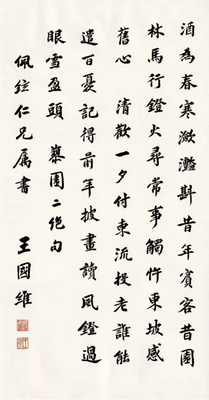 酒為春寒瀲灩斟昔年賓客昔園
林馬行鐙火尋常事觸忤東坡感
舊心 清歡一夕付東流投老誰能
遣百憂記得前年披畫讀風鐙過
眼雪盈頭 園二絕句
佩仁兄屬書
王國維